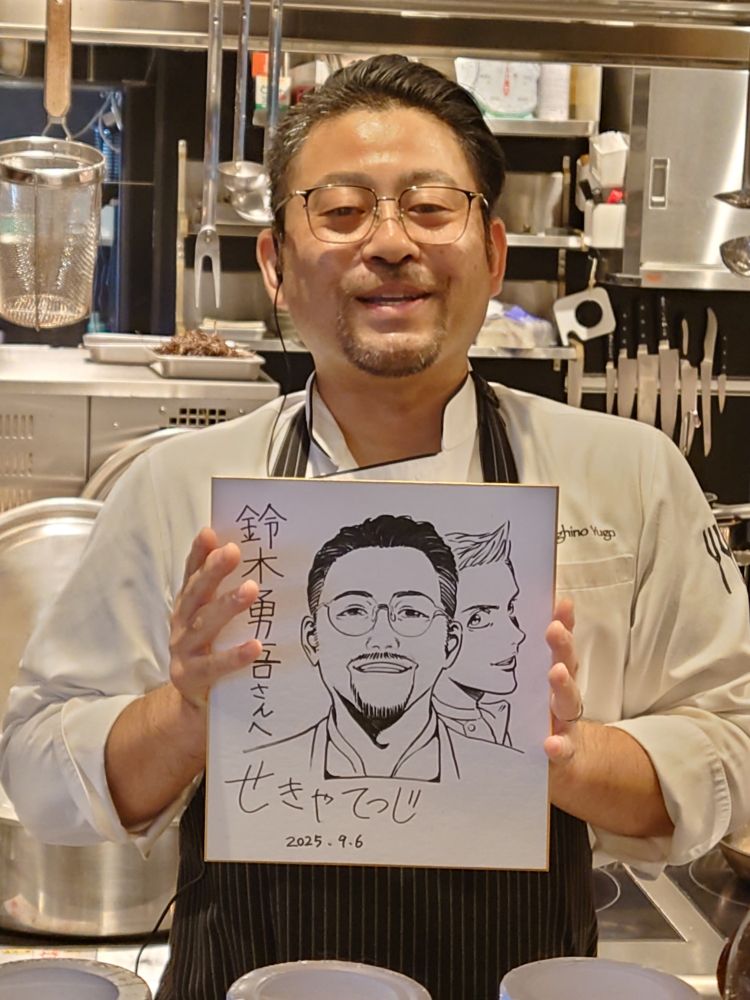 鈴木勇吾さんへ
せきやてつじ
2025.9.6
ghino Yugo